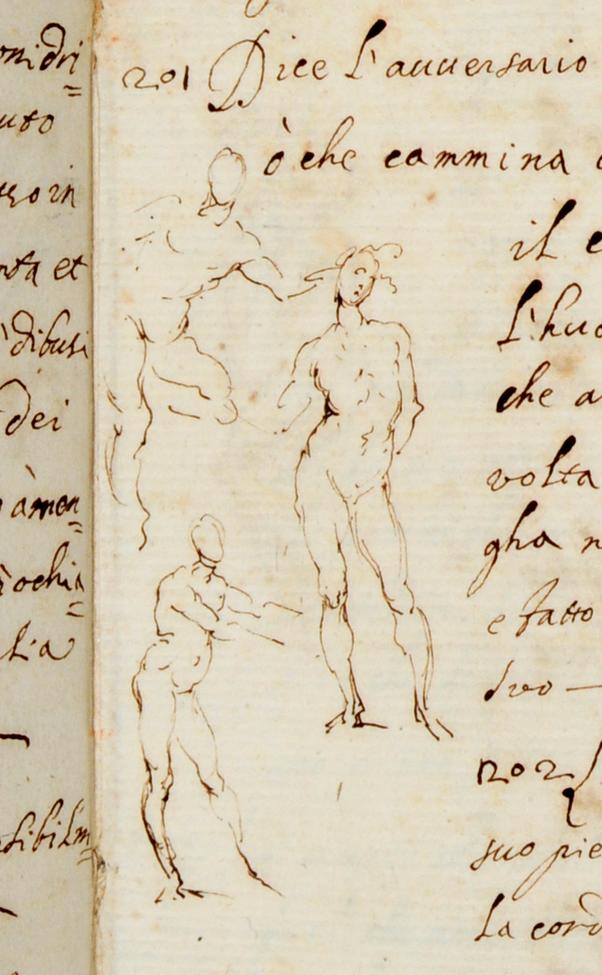 dri
uto
et
dibusi
dei
àmen
ochia
La
sibilm
201 Dice L'auuersario
ò che cammina
il
L'huo
che a
volta
gha n
e fatto
suo
202
suo pie
La cord